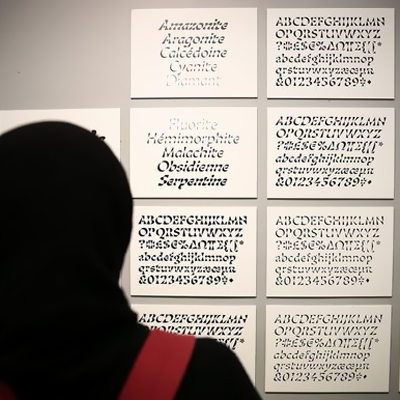 Amazonite
Aragonite
Calcédoine
Cyanite
Diamant
ABCDEFGHIJKLMN
OPQRSTUVWXYZ
abcdefghijklmnop
qrstuvwxyzæœµπ
&0123456789
Fluorite
Hémimorphite
Malachite
Obsidienne
Serpentine
ABCDEFGHIJKLMN
OPQRSTUVWXYZ
abcdefghijklmnop
qrstuvwxyzæœµπ
&0123456789
ABCDEFGHIJKLMN
OPQRSTUVWXYZ
abcdefghijklmnop
qrstuvwxyzæœµπ
&0123456789
ABCDEFGHIJKLMN
OPQRSTUVWXYZ
abcdefghijklmnop
qrstuvwxyzæœµπ
&0123456789
ABCDEFGHIJKLMN
OPQRSTUVWXYZ
ABCDEFGHIJKLMN
OPQRSTUVWXYZ
abcdefghijklmnop
qrstuvwxyzæœµπ
&0123456789